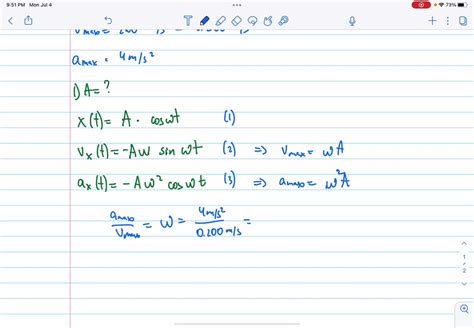 9:51 PM Mon Jul 4
73%
a_max = 4 m/s²
1) A = ?
x(t) = A · cos ωt (1)
v_x(t) = -Aω sin ωt (2) ⇒ v_max = ωA
a_x(t) = -Aω² cos ωt (3) ⇒ a_max = ω²A
a_max / v_max = ω = 4 m/s² / 0.200 m/s =
1
2